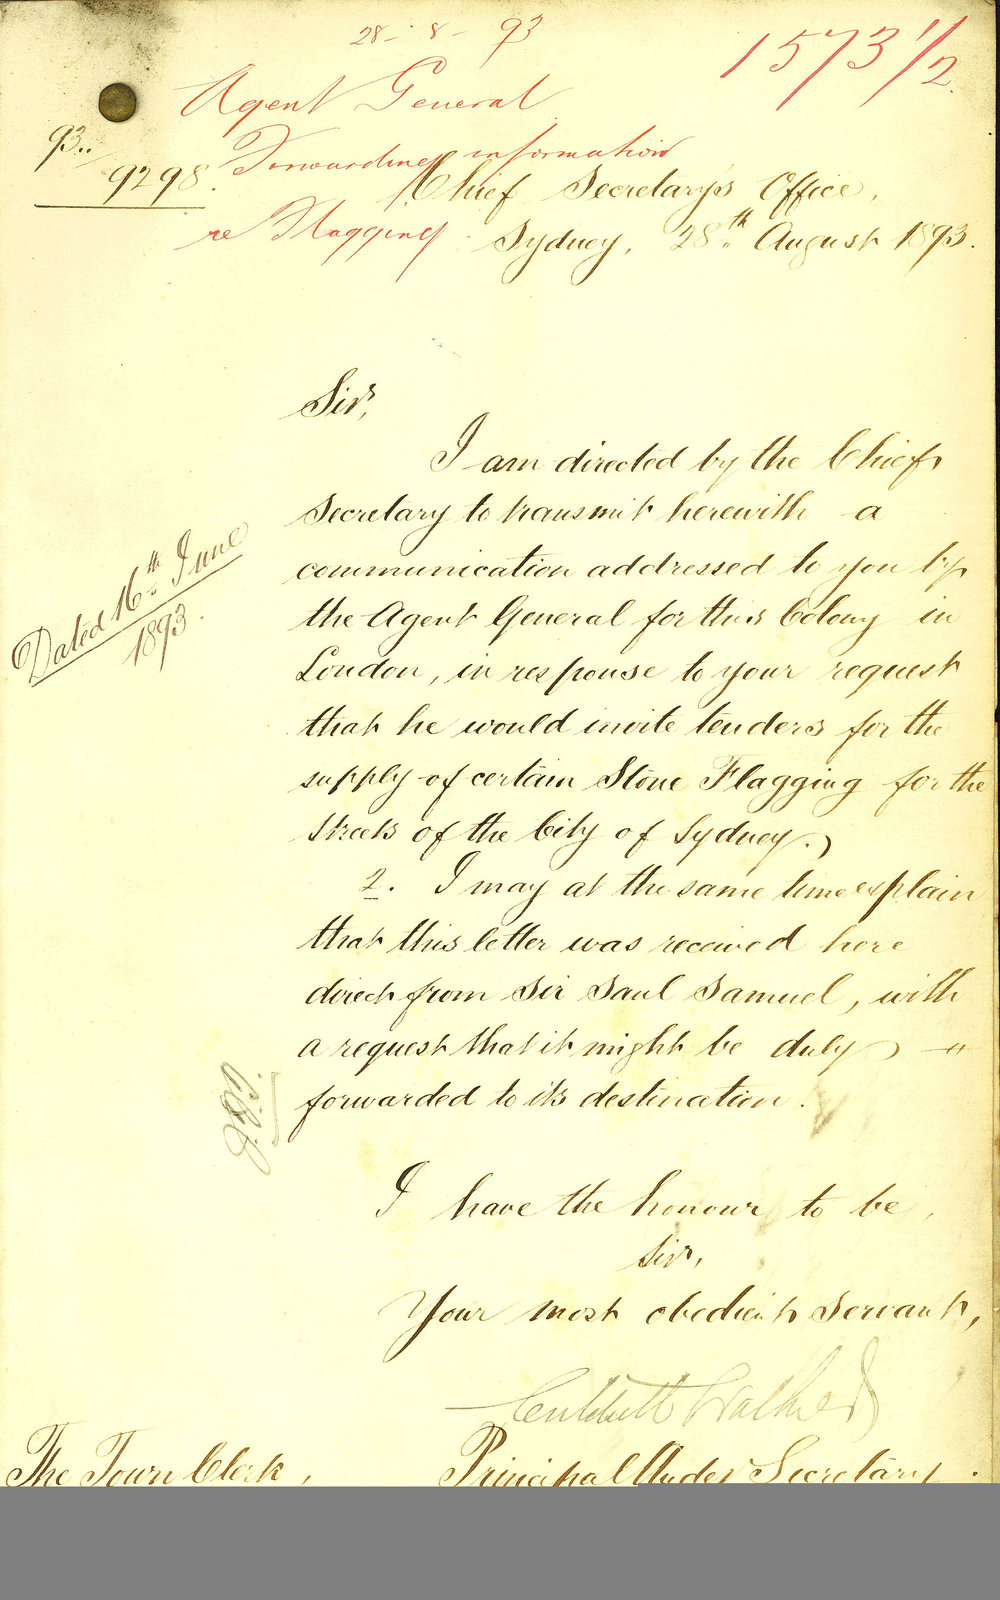 28-8-93
1573 1/2
Agent General
93..
9298.
Forwarding information
Chief Secretary's Office,
re Flagging
Sydney, 28th August 1893.
Sir,
I am directed by the Chief
Secretary to transmit herewith a
communication addressed to you by
Dated 16th June
1893.
the Agent General for this Colony in
London, in response to your request
that he would invite tenders for the
supply of certain Stone Flagging for the
streets of the City of Sydney.
2. I may at the same time explain
that this letter was received here
direct from Sir Saul Samuel, with
a request that it might be duly
forwarded to its destination.
I have the honour to be,
Sir,
Your most obedient Servant,
Critchett Walker
The Town Clerk,
Principal Under Secretary.